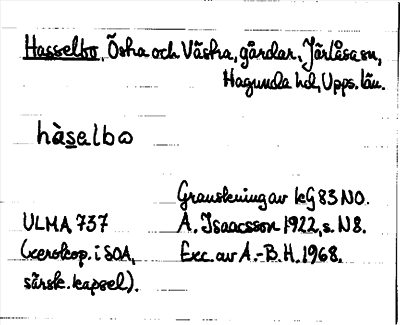 Hasselbo, Östra och Västra, gårdar, Järlåsa sn,
Hagunda hd, Upps. län.
hàselbω
Granskning av kG 83 NO.
ULMA 737 A. Isaacsson 1922, s. N8.
(xerokop. i SOA, Exc. av A.-B. H. 1968.
särsk. kapsel).